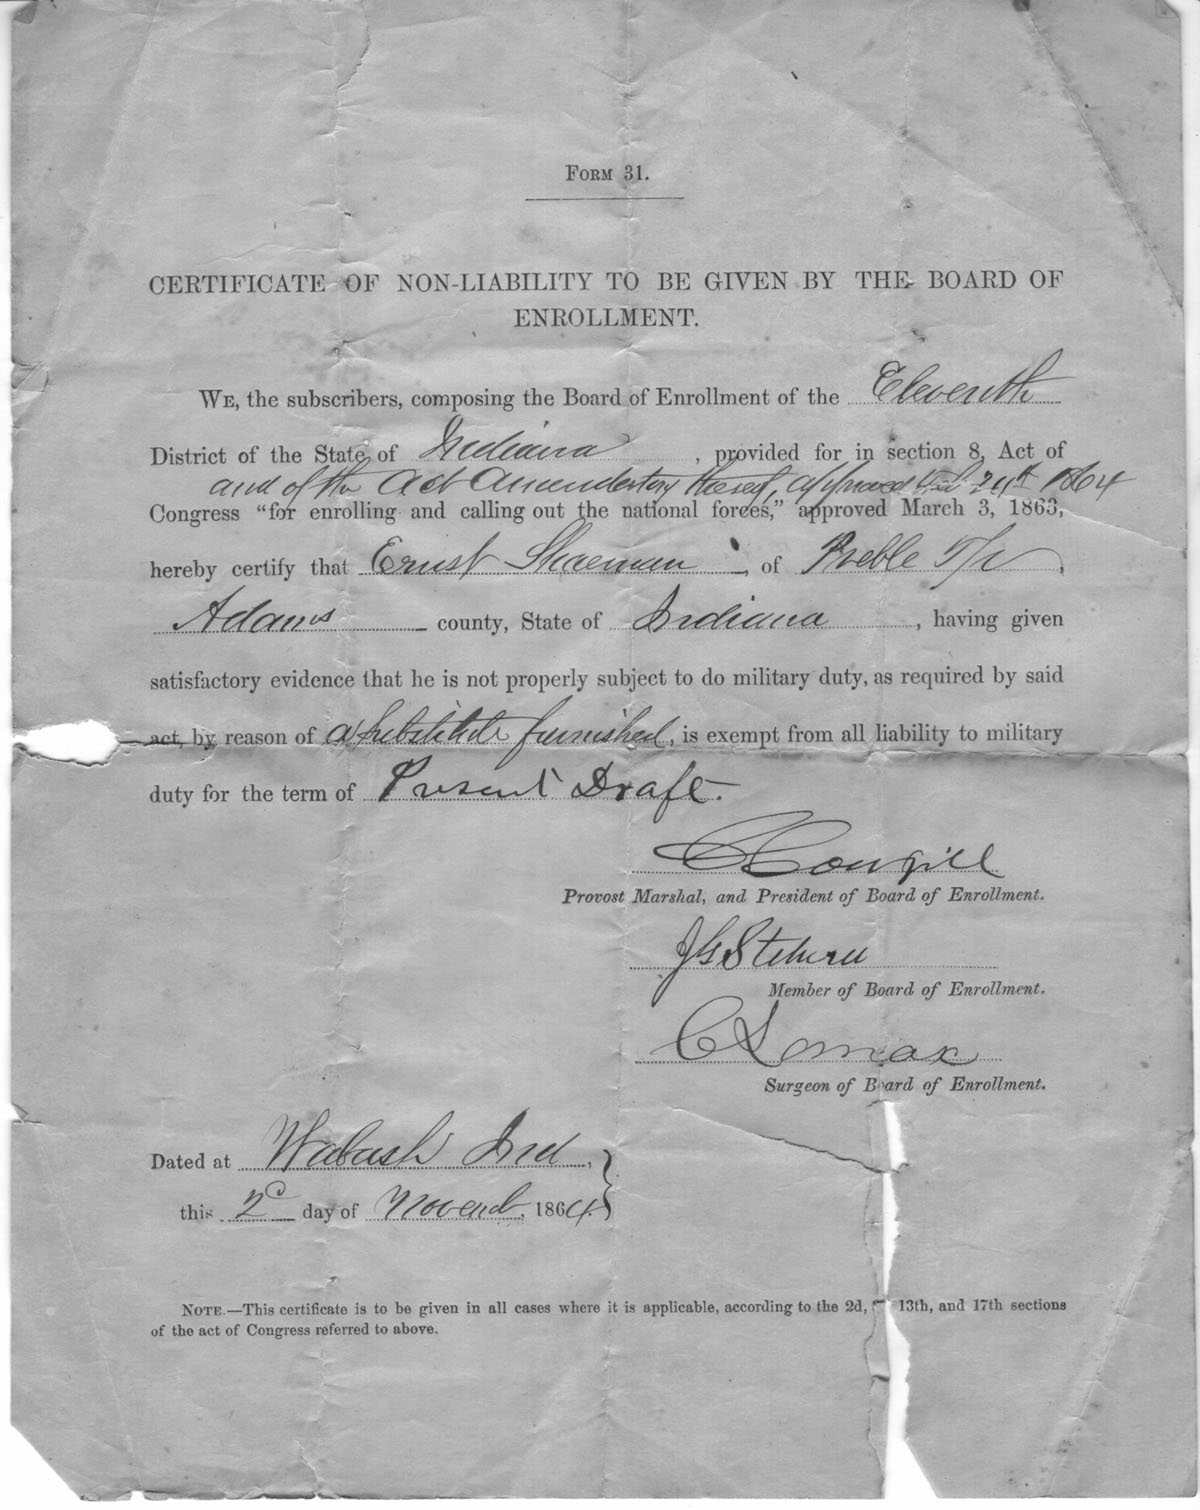 FORM 31.
CERTIFICATE OF NON-LIABILITY TO BE GIVEN BY THE BOARD OF
ENROLLMENT.
WE, the subscribers, composing the Board of Enrollment of the Eleventh
District of the State of Indiana, provided for in section 8, Act of
and of the Act Amendatory thereof, approved Feb 24th 1864
Congress “for enrolling and calling out the national forces,” approved March 3, 1863,
hereby certify that Ernst Shaeman, of Preble T/p,
Adams county, State of Indiana, having given
satisfactory evidence that he is not properly subject to do military duty, as required by said
act, by reason of a substitute furnished, is exempt from all liability to military
duty for the term of Present Draft.
C Cowgill
Provost Marshal, and President of Board of Enrollment.
J G
Member of Board of Enrollment.
C Lomax
Surgeon of Board of Enrollment.
Dated at Wabash Ind,
this 2d day of Novemb, 1864.
NOTE.—This certificate is to be given in all cases where it is applicable, according to the 2d, 13th, and 17th sections
of the act of Congress referred to above.